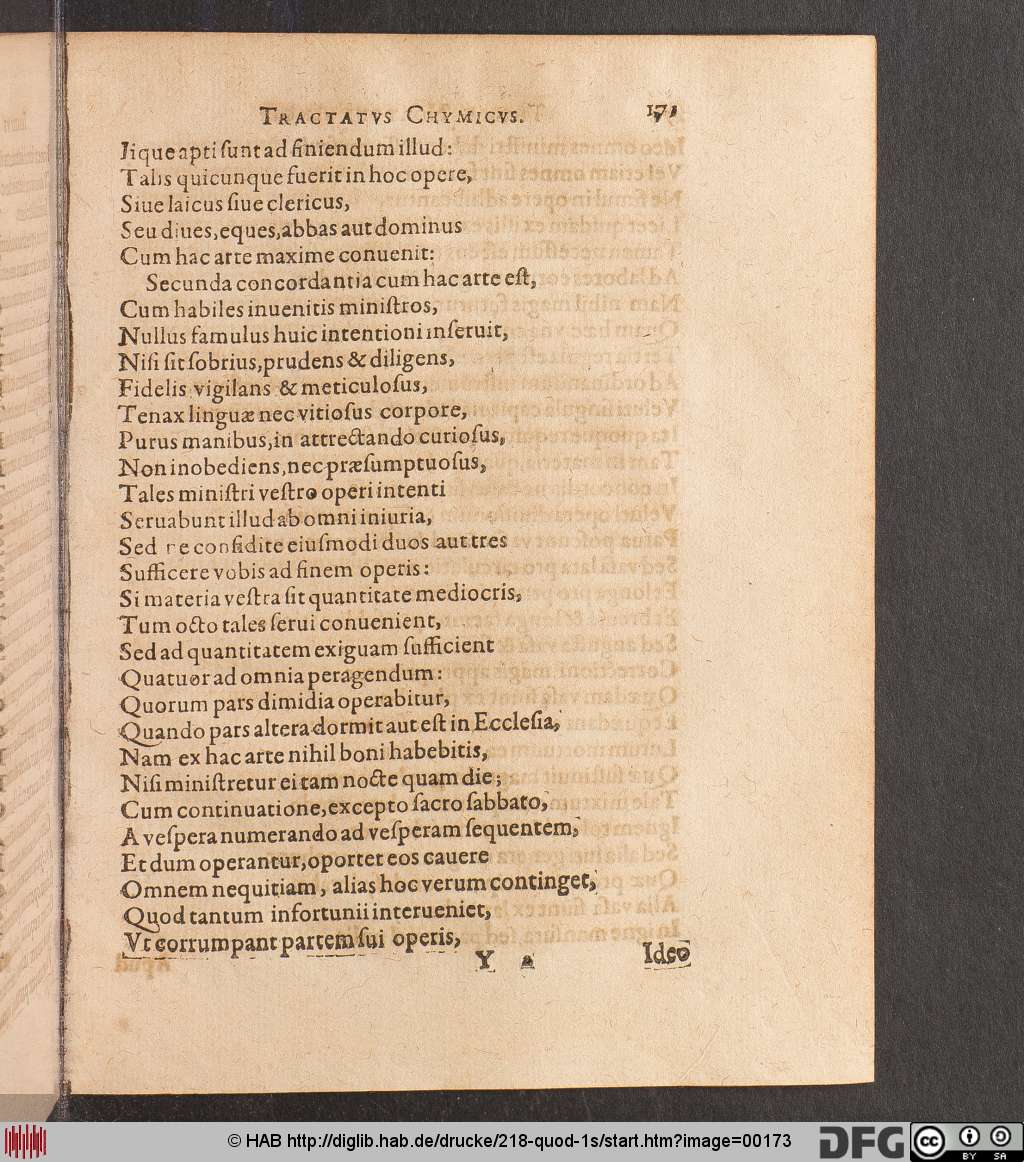 TRACTATVS CHYMICVS. 171
Iique apti ſunt ad finiendum illud:
Talis quicunque fuerit in hoc opere,
Siue laicus ſiue clericus,
Seu diues, eques, abbas aut dominus
Cum hac arte maxime conuenit:
Secunda concordantia cum hac arte eſt,
Cum habiles inuenitis miniſtros,
Nullus famulus huic intentioni inſeruit,
Niſi ſit ſobrius, prudens & diligens,
Fidelis vigilans & meticuloſus,
Tenax linguæ nec vitioſus corpore,
Purus manibus, in attrectando curioſus,
Non inobediens, nec præſumptuoſus,
Tales miniſtri veſtro operi intenti
Seruabunt illud ab omni iniuria,
Sed re confidite eiuſmodi duos aut tres
Sufficere vobis ad finem operis:
Si materia veſtra ſit quantitate mediocris,
Tum octo tales ſerui conuenient,
Sed ad quantitatem exiguam ſufficient
Quatuor ad omnia peragendum:
Quorum pars dimidia operabitur,
Quando pars altera dormit aut eſt in Eccleſia,
Nam ex hac arte nihil boni habebitis,
Niſi miniſtretur ei tam nocte quam die;
Cum continuatione, excepto ſacro ſabbato,
A veſpera numerando ad veſperam ſequentem,
Et dum operantur, oportet eos cauere
Omnem nequitiam, alias hoc verum continget,
Quod tantum infortunii interueniet,
Vt corrumpant partem ſui operis,
Y Ideo
© HAB http://diglib.hab.de/drucke/218-quod-1s/start.htm?image=00173 DFG cc BY SA